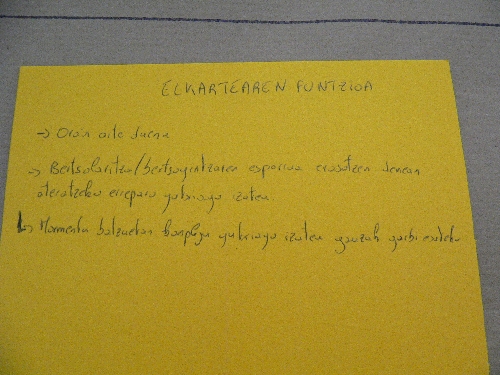 ELKARTEAREN FUNTZIOA
→ Orain arte duena
→ Bertsolaritza/bertsogintzaren esparrua erasotzen denean
ateratzeko erreparo gutxiago izatea
→ Momentu batzuetan konplejo gutxiago izatea gauzak garbi esateko